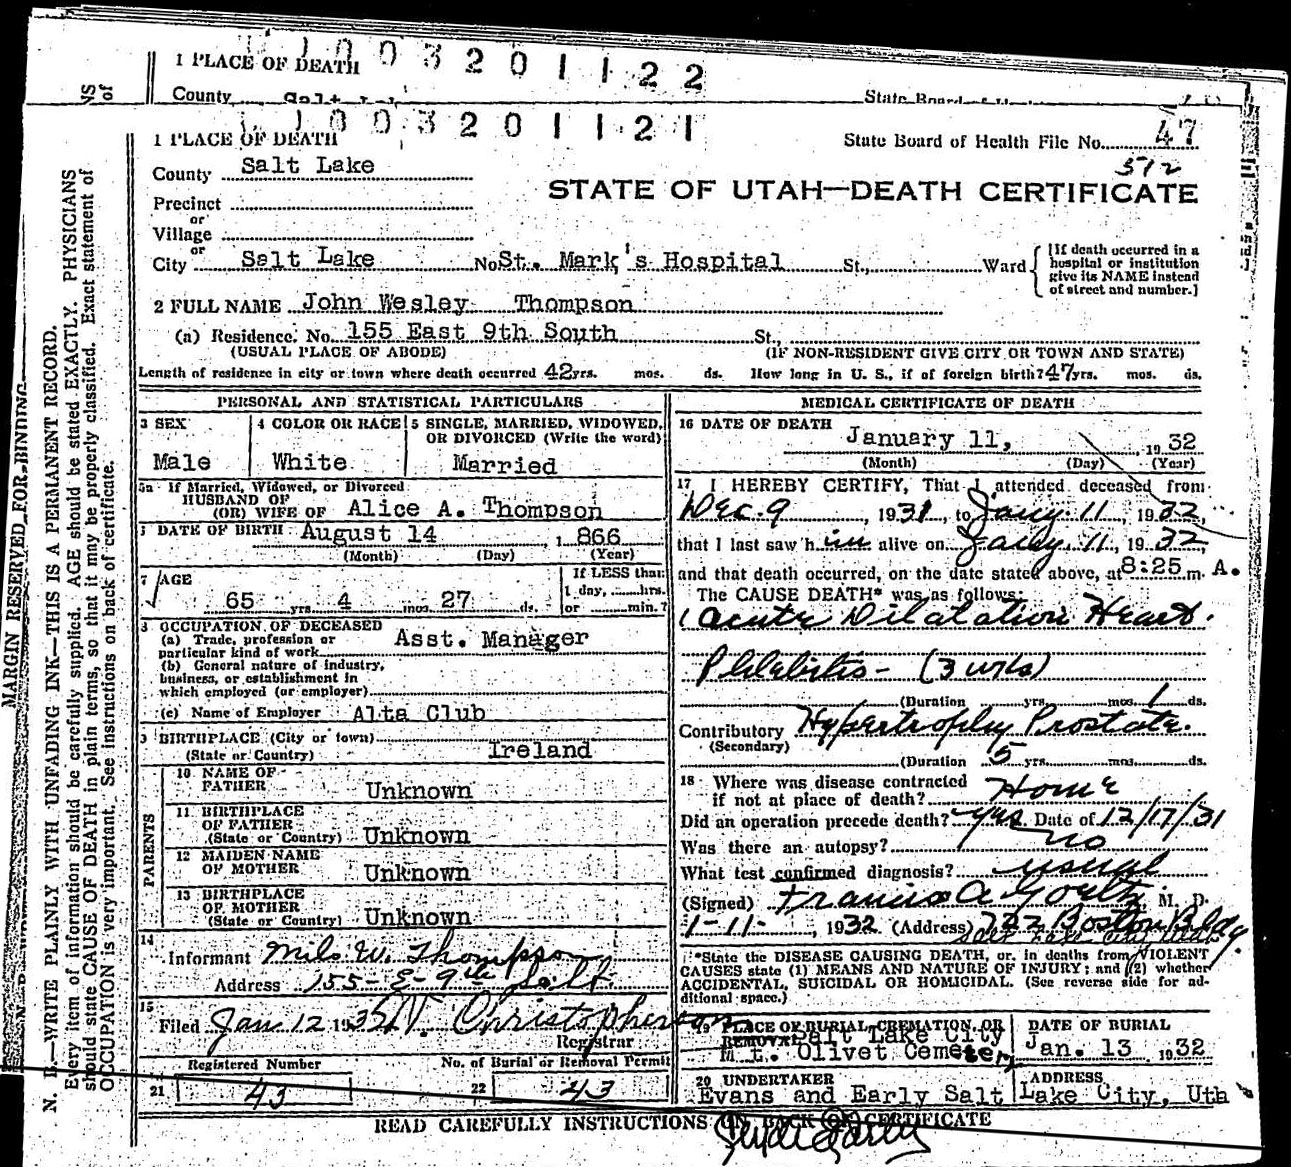 1 PLACE OF DEATH
1003201122
County Salt
State Board of
1003201121
1 PLACE OF DEATH
State Board of Health File No. 47
512
County Salt Lake
STATE OF UTAH—DEATH CERTIFICATE
Precinct
or
Village
or
City Salt Lake No. St. Mark's Hospital St., Ward
[If death occurred in a
hospital or institution
give its NAME instead
of street and number.]
2 FULL NAME John Wesley Thompson
(a) Residence. No. 155 East 9th South St.,
(USUAL PLACE OF ABODE) (IF NON-RESIDENT GIVE CITY OR TOWN AND STATE)
Length of residence in city or town where death occurred 42 yrs. mos. ds. How long in U. S., if of foreign birth? 47 yrs. mos. ds.
PERSONAL AND STATISTICAL PARTICULARS
3 SEX
Male
4 COLOR OR RACE
White
5 SINGLE, MARRIED, WIDOWED,
OR DIVORCED (Write the word)
Married
5a If Married, Widowed, or Divorced
HUSBAND OF
(OR) WIFE OF Alice A. Thompson
DATE OF BIRTH August 14, 1866
(Month) (Day) (Year)
7 AGE
65 yrs. 4 mos. 27 ds.
If LESS than
1 day, hrs.
or min.?
8 OCCUPATION OF DECEASED
(a) Trade, profession or
particular kind of work Asst. Manager
(b) General nature of industry,
business, or establishment in
which employed (or employer)
(c) Name of Employer Alta Club
9 BIRTHPLACE (City or town)
(State or Country) Ireland
PARENTS
10 NAME OF
FATHER Unknown
11 BIRTHPLACE
OF FATHER
(State or Country) Unknown
12 MAIDEN NAME
OF MOTHER Unknown
13 BIRTHPLACE
OF MOTHER
(State or Country) Unknown
14
Informant W. Thompson
Address 155-E-9th So.
15
Filed Jan 12 193 Christopherson
Registrar
Registered Number No. of Burial or Removal Permit
21 43 22 43
MEDICAL CERTIFICATE OF DEATH
16 DATE OF DEATH
January 11, 1932
(Month) (Day) (Year)
17 I HEREBY CERTIFY, That I attended deceased from
Dec. 9, 1931, to Jany. 11, 1932,
that I last saw him alive on Jany. 11, 1932
and that death occurred, on the date stated above, at 8:25 m. A.
The CAUSE DEATH* was as follows:
Acute Dilatation Heart.
Phlebitis - (3 wks)
(Duration yrs. mos. 1 ds.
Contributory Hypertrophy Prostate.
(Secondary)
(Duration 5 yrs. mos. ds.
18 Where was disease contracted
if not at place of death? Home
Did an operation precede death? yes. Date of 12/17/31
Was there an autopsy? no
What test confirmed diagnosis? usual
(Signed) Francis A. Goeltz M. D.
1-11-, 1932 (Address) 722 Boston Bldg.
Salt Lake City Utah
*State the DISEASE CAUSING DEATH, or, in deaths from VIOLENT
CAUSES state (1) MEANS AND NATURE OF INJURY; and (2) whether
ACCIDENTAL, SUICIDAL OR HOMICIDAL. (See reverse side for ad-
ditional space.)
19 PLACE OF BURIAL, CREMATION, OR
REMOVAL Salt Lake City
Mt. Olivet Cemetery
DATE OF BURIAL
Jan. 13 1932
20 UNDERTAKER
Evans and Early Salt
ADDRESS
Lake City, Uth
READ CAREFULLY INSTRUCTIONS ON BACK OF CERTIFICATE
MARGIN RESERVED FOR BINDING
N. B.—WRITE PLAINLY WITH UNFADING INK—THIS IS A PERMANENT RECORD.
Every item of information should be carefully supplied. AGE should be stated EXACTLY. PHYSICIANS
should state CAUSE OF DEATH in plain terms, so that it may be properly classified. Exact statement of
OCCUPATION is very important. See instructions on back of certificate.